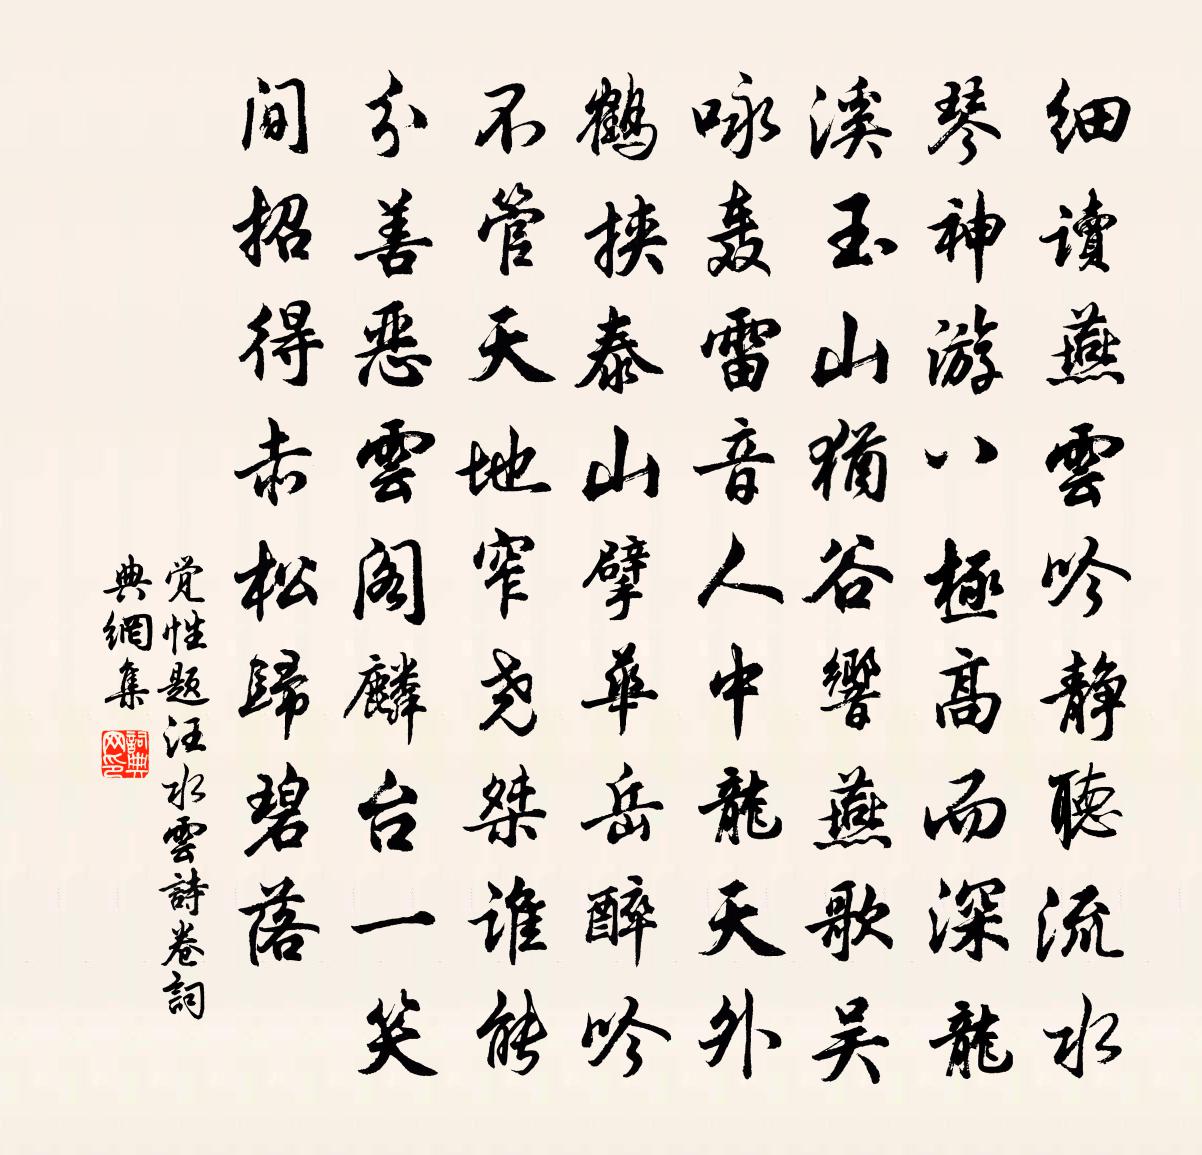 细读燕雲吟静聽流水
琴神游八極高而深龍
溪玉山猶谷響燕歌吴
咏轰雷音人中龍天外
鶴挟泰山擘華岳醉吟
不管天地窄尧桀谁能
分善惡雲阁麟台一笑
间招得赤松歸碧落
觉性题汪水雲詩卷詞
典網集
詞典网印